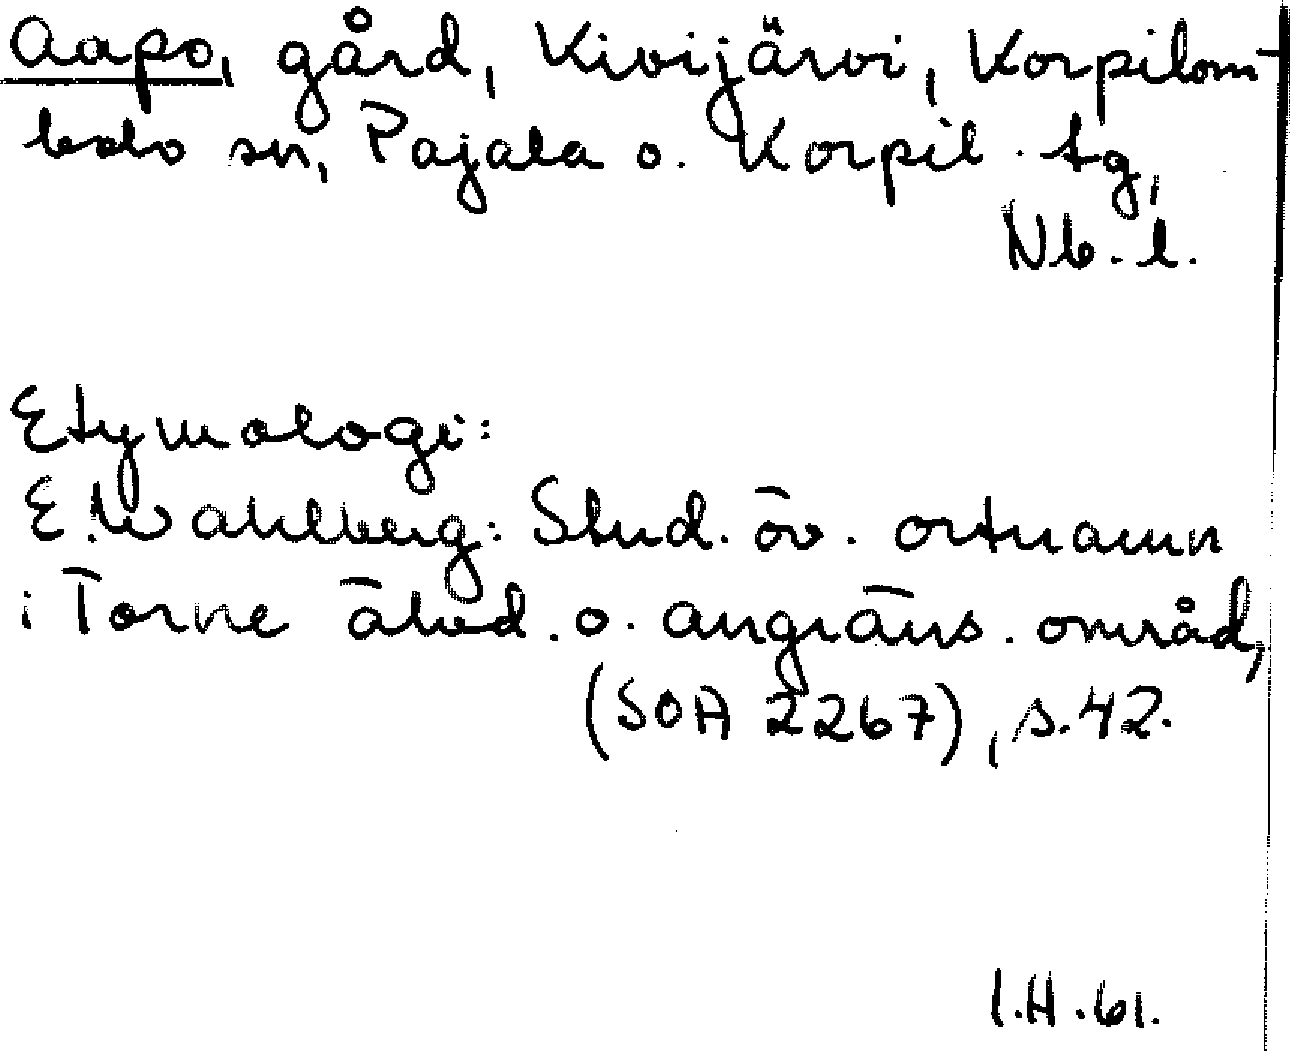 Aapo, gård, Kivijärvi, Korpilom-
bolo sn, Pajala o. Korpil. tg,
Nb. l.
Etymologi:
E. Wahlberg: Stud. öv. ortnamn
i Torne älvd. o. angräns. områd,
(SOA 2267), s. 42.
I.H. 61.